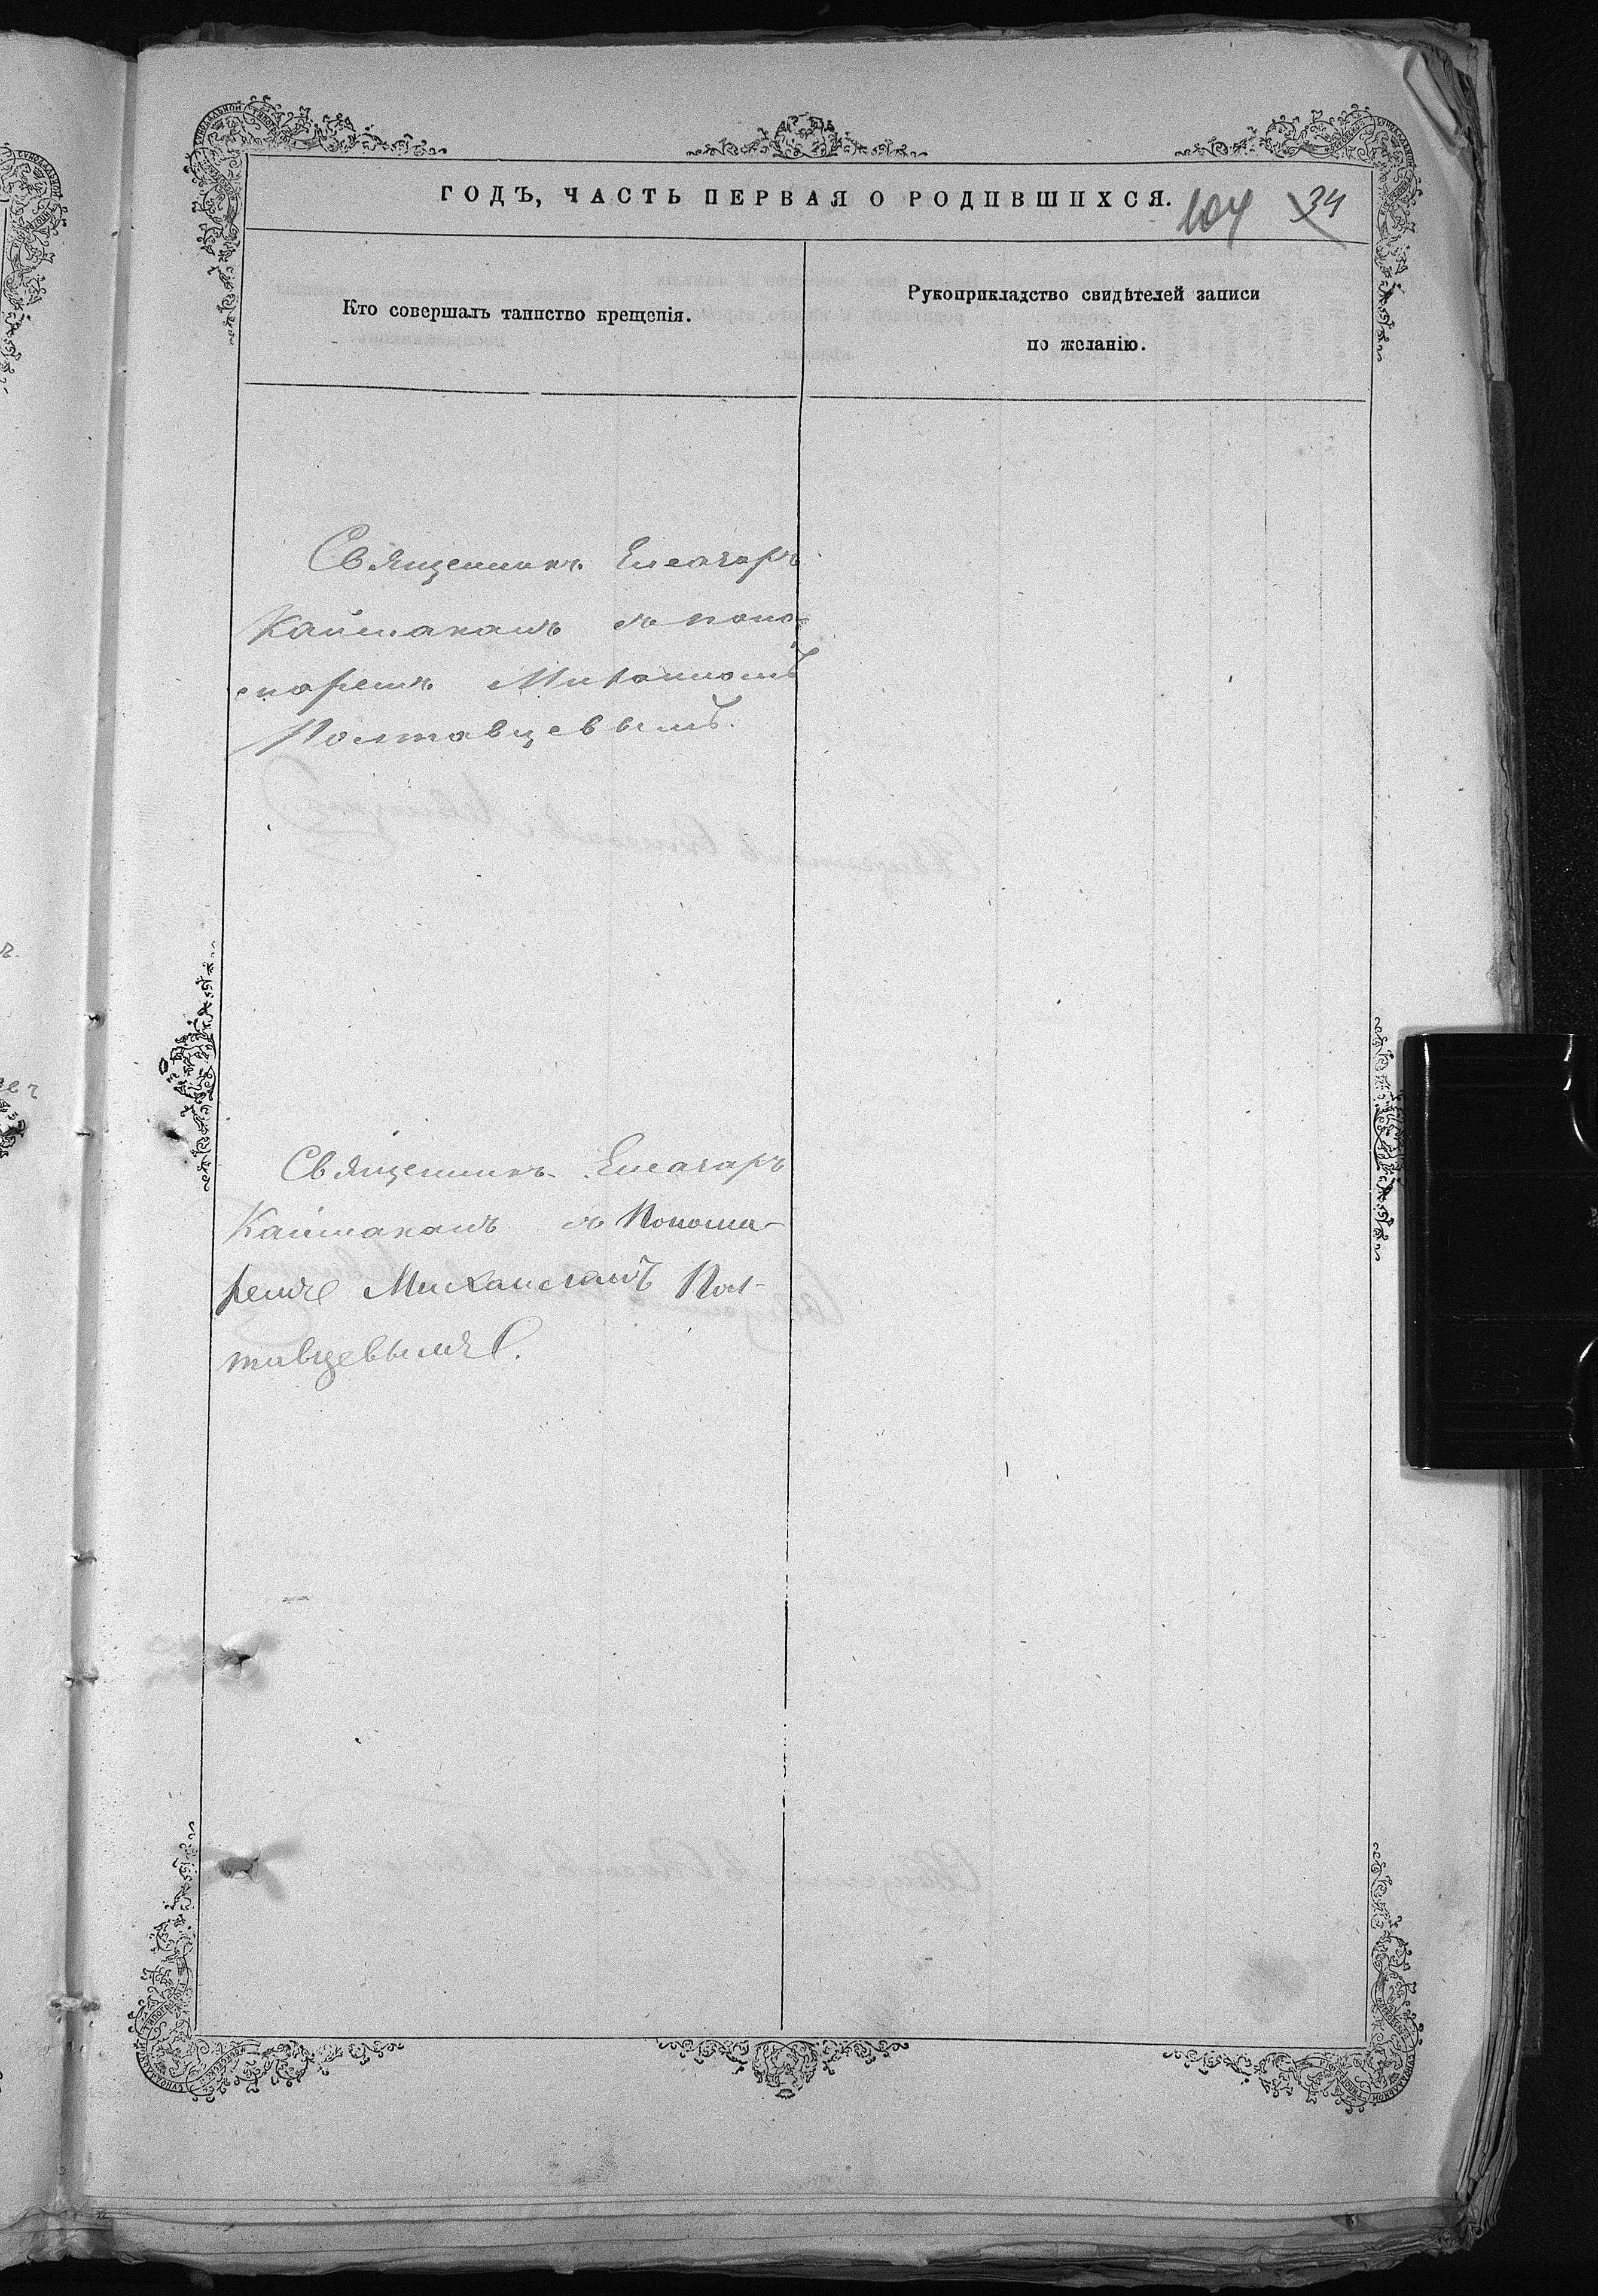 ГОДЪ, ЧАСТЬ ПЕРВАЯ О РОДИВШИХСЯ.
104 34
Кто совершалъ таинство крещенія.
Рукоприкладство свидѣтелей записи
по желанію.
Священникъ Елеазаръ
Каймаканъ съ поно-
маремъ Михаиломъ
Полтавцевымъ.
Священникъ Елеазаръ
Каймаканъ съ Понома-
ремъ Михаиломъ Пол-
тавцевымъ.